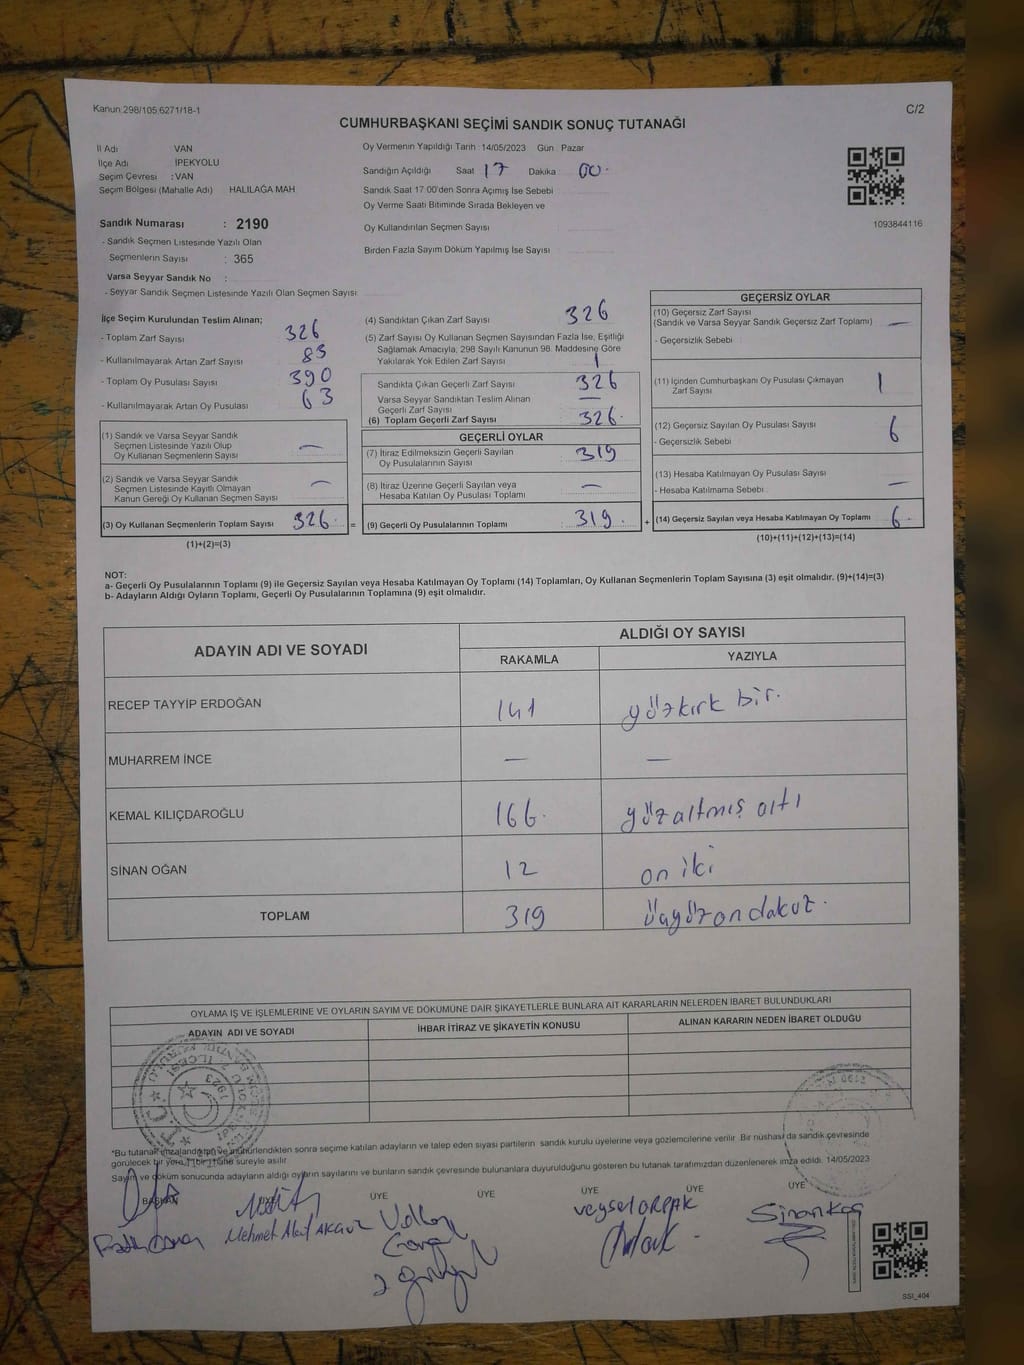 Kanun 298/105 6271/18-1
C/2
CUMHURBAŞKANI SEÇİMİ SANDIK SONUÇ TUTANAĞI
İl Adı VAN
İlçe Adı İPEKYOLU
Seçim Çevresi : VAN
Seçim Bölgesi (Mahalle Adı) HALİLAĞA MAH
Sandık Numarası : 2190
- Sandık Seçmen Listesinde Yazılı Olan
Seçmenlerin Sayısı : 365
Varsa Seyyar Sandık No :
- Seyyar Sandık Seçmen Listesinde Yazılı Olan Seçmen Sayısı
Oy Vermenin Yapıldığı Tarih : 14/05/2023 Gün : Pazar
Sandığın Açıldığı Saat 17 Dakika 00
Sandık Saat 17 00'den Sonra Açımış İse Sebebi
Oy Verme Saati Bitiminde Sırada Bekleyen ve
Oy Kullandırılan Seçmen Sayısı
Birden Fazla Sayım Döküm Yapılmış İse Sayısı
1093844116
İlçe Seçim Kurulundan Teslim Alınan;
- Toplam Zarf Sayısı 326
- Kullanılmayarak Artan Zarf Sayısı 83
- Toplam Oy Pusulası Sayısı 390
- Kullanılmayarak Artan Oy Pusulası 63
(1) Sandık ve Varsa Seyyar Sandık
Seçmen Listesinde Yazılı Olup
Oy Kullanan Seçmenlerin Sayısı —
(2) Sandık ve Varsa Seyyar Sandık
Seçmen Listesinde Kayıtlı Olmayan
Kanun Gereği Oy Kullanan Seçmen Sayısı —
(3) Oy Kullanan Seçmenlerin Toplam Sayısı 326 =
(1)+(2)=(3)
(4) Sandıktan Çıkan Zarf Sayısı 326
(5) Zarf Sayısı Oy Kullanan Seçmen Sayısından Fazla İse, Eşitliği
Sağlamak Amacıyla, 298 Sayılı Kanunun 98. Maddesine Göre
Yakılarak Yok Edilen Zarf Sayısı 1
Sandıkta Çıkan Geçerli Zarf Sayısı 326
Varsa Seyyar Sandıktan Teslim Alınan
Geçerli Zarf Sayısı —
(6) Toplam Geçerli Zarf Sayısı 326.
GEÇERLİ OYLAR
(7) İtiraz Edilmeksizin Geçerli Sayılan
Oy Pusulalarının Sayısı 319
(8) İtiraz Üzerine Geçerli Sayılan veya
Hesaba Katılan Oy Pusulası Toplamı —
(9) Geçerli Oy Pusulalarının Toplamı 319. +
GEÇERSİZ OYLAR
(10) Geçersiz Zarf Sayısı
(Sandık ve Varsa Seyyar Sandık Geçersiz Zarf Toplamı) —
- Geçersizlik Sebebi
(11) İçinden Cumhurbaşkanı Oy Pusulası Çıkmayan
Zarf Sayısı 1
(12) Geçersiz Sayılan Oy Pusulası Sayısı 6
- Geçersizlik Sebebi
(13) Hesaba Katılmayan Oy Pusulası Sayısı —
- Hesaba Katılmama Sebebi
(14) Geçersiz Sayılan veya Hesaba Katılmayan Oy Toplamı 6.
(10)+(11)+(12)+(13)=(14)
NOT:
a- Geçerli Oy Pusulalarının Toplamı (9) ile Geçersiz Sayılan veya Hesaba Katılmayan Oy Toplamı (14) Toplamları, Oy Kullanan Seçmenlerin Toplam Sayısına (3) eşit olmalıdır. (9)+(14)=(3)
b- Adayların Aldığı Oyların Toplamı, Geçerli Oy Pusulalarının Toplamına (9) eşit olmalıdır.
ADAYIN ADI VE SOYADI ALDIĞI OY SAYISI
RAKAMLA YAZIYLA
RECEP TAYYİP ERDOĞAN 141 yüzkırk bir.
MUHARREM İNCE — —
KEMAL KILIÇDAROĞLU 166. yüzaltmış altı
SİNAN OĞAN 12 on iki
TOPLAM 319 üçyüzondokuz.
OYLAMA İŞ VE İŞLEMLERİNE VE OYLARIN SAYIM VE DÖKÜMÜNE DAİR ŞİKAYETLERLE BUNLARA AİT KARARLARIN NELERDEN İBARET BULUNDUKLARI
ADAYIN ADI VE SOYADI İHBAR İTİRAZ VE ŞİKAYETİN KONUSU ALINAN KARARIN NEDEN İBARET OLDUĞU
*Bu tutanak imzalandıktan ve mühürlendikten sonra seçime katılan adayların ve talep eden siyasi partilerin sandık kurulu üyelerine veya gözlemcilerine verilir. Bir nüshası da sandık çevresinde
görülecek bir yere 1 (bir) hafta süreyle asılır.
Sayım ve döküm sonucunda adayların aldığı oyların sayılarını ve bunların sandık çevresinde bulunanlara duyurulduğunu gösteren bu tutanak tarafımızdan düzenlenerek imza edildi. 14/05/2023
BAŞKAN ÜYE ÜYE ÜYE ÜYE ÜYE ÜYE
Mehmet Akif AKGÜZ
Veysel ORPAK
Sinan Koç
SSI_404